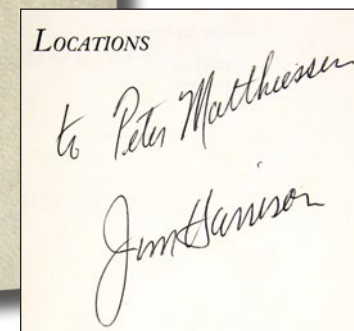 LOCATIONS
to Peter Matthiessen
Jim Harrison